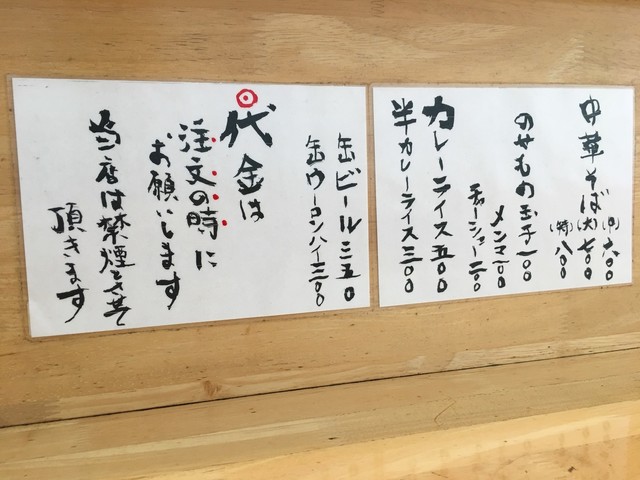 中華そば
(中)六〇〇
(大)七〇〇
(特)八〇〇
のせもの玉子一〇〇
メンマ一〇〇
チャーシュー二〇〇
カレーライス五〇〇
半カレーライス三〇〇
缶ビール三五〇
缶ウーロンハイ三〇〇
代金は
注文の時に
お願いします
当店は禁煙とさせて
頂きます